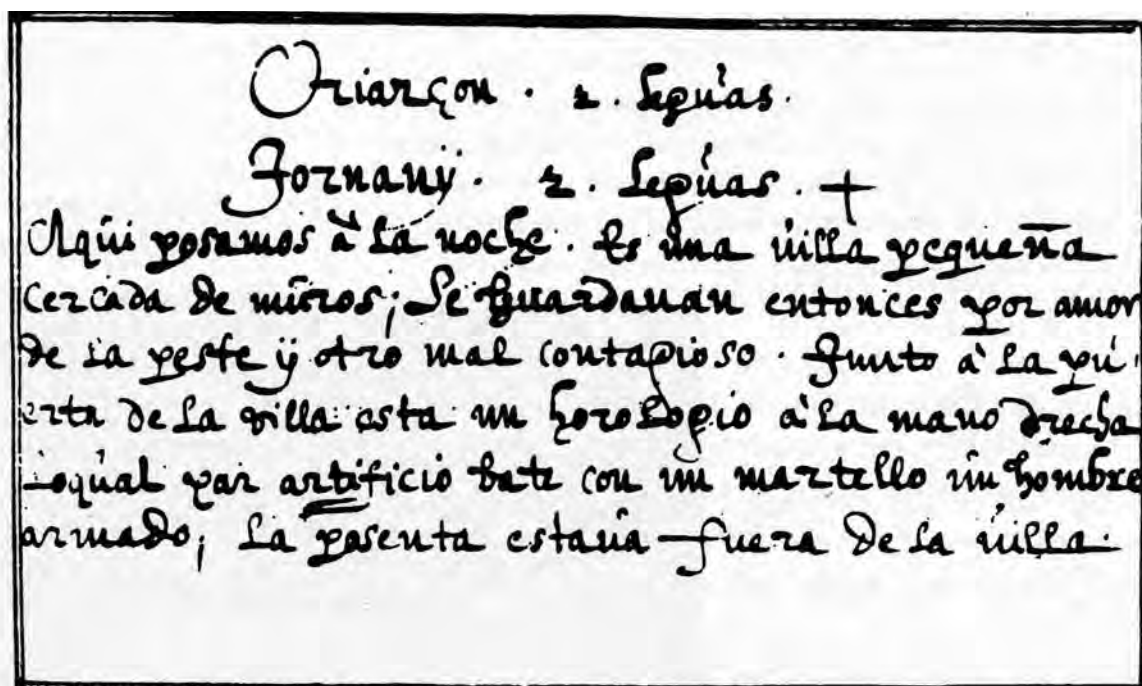 Oriarçon . 2 . leguas .
Jornanÿ . 2 . leguas . +
Aqui posamos à la noche . Es una uilla pequeña
cercada de muros ; Se guardauan entonces por amor
de la peste ÿ otro mal contagioso . Junto à la pu
erta de la villa esta un horologio à la mano drecha
loqual par artificio bate con un martello un hombre
armado ; La posenta estaua fuera de la uilla .